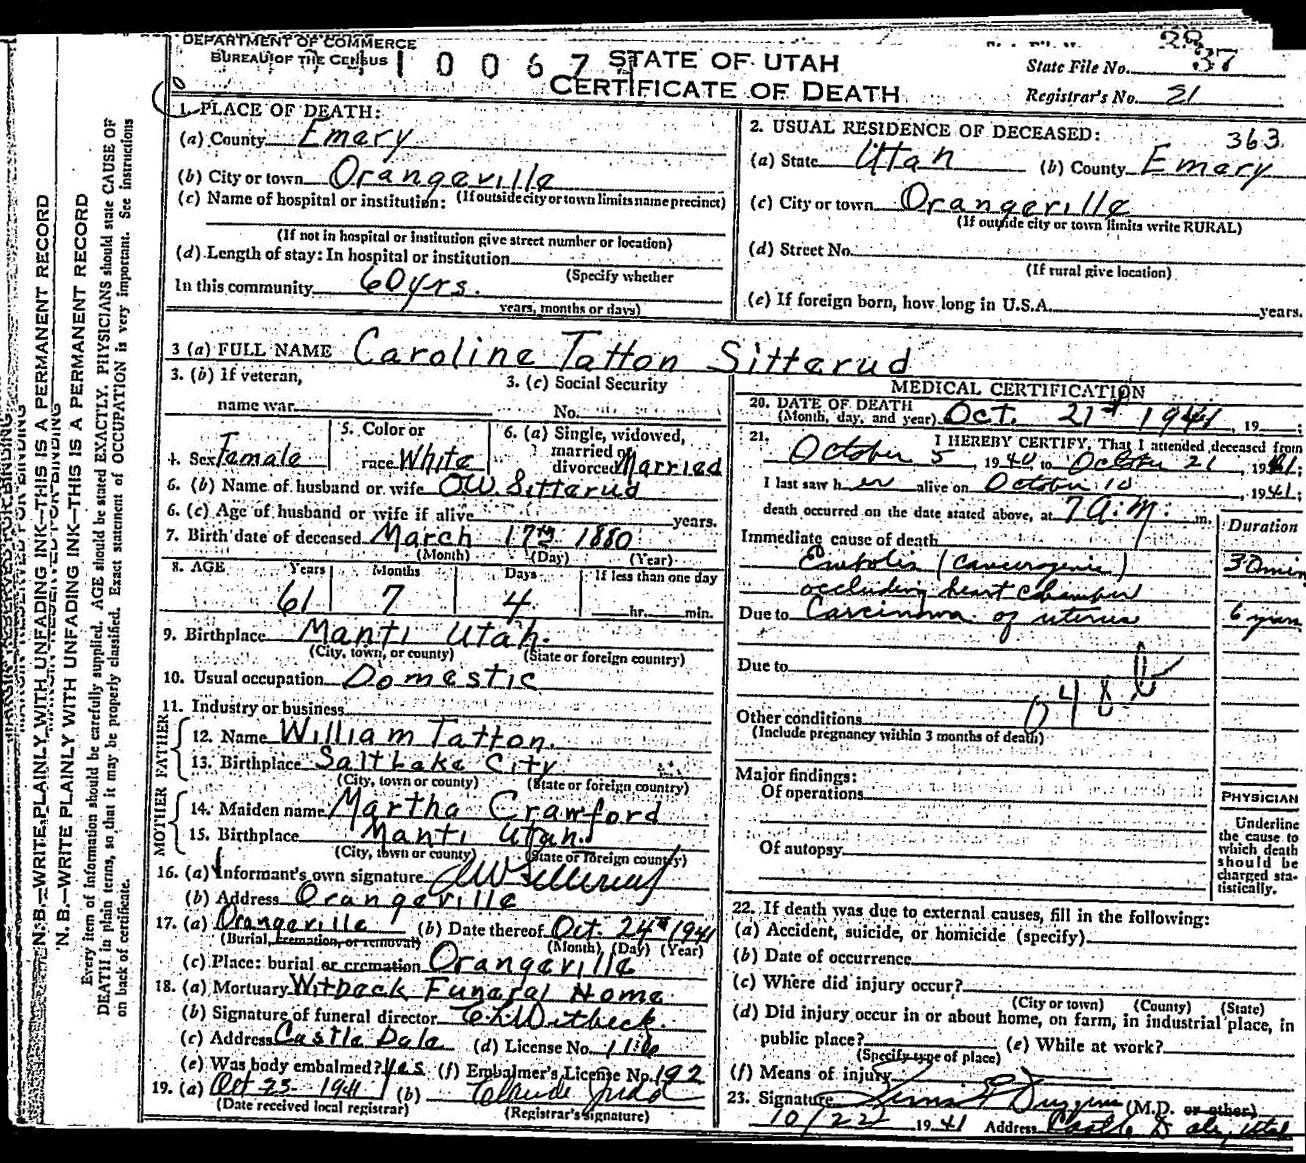 DEPARTMENT OF COMMERCE
BUREAU OF THE CENSUS
1 0 0 6 7
STATE OF UTAH
CERTIFICATE OF DEATH
State File No. 37
Registrar's No. 21
1. PLACE OF DEATH:
(a) County Emery
(b) City or town Orangeville
(c) Name of hospital or institution: (If outside city or town limits name precinct)
(If not in hospital or institution give street number or location)
(d) Length of stay: In hospital or institution
(Specify whether
In this community 60 yrs.
years, months or days)
2. USUAL RESIDENCE OF DECEASED: 363
(a) State Utah (b) County Emery
(c) City or town Orangeville
(If outside city or town limits write RURAL)
(d) Street No.
(If rural give location)
(e) If foreign born, how long in U.S.A. years.
3 (a) FULL NAME Caroline Tatton Sitterud
3. (b) If veteran,
name war
3. (c) Social Security
No.
4. Sex Female
5. Color or
race White
6. (a) Single, widowed,
married or
divorced Married
6. (b) Name of husband or wife O.W. Sitterud
6. (c) Age of husband or wife if alive years.
7. Birth date of deceased March 17th 1880
(Month) (Day) (Year)
8. AGE Years Months Days If less than one day
61 7 4 hr. min.
9. Birthplace Manti Utah.
(City, town, or county) (State or foreign country)
10. Usual occupation Domestic
11. Industry or business
FATHER
12. Name William Tatton.
13. Birthplace Salt Lake City
(City, town or county) (State or foreign country)
MOTHER
14. Maiden name Martha Crawford
15. Birthplace Manti Utah.
(City, town or county) (State or foreign country)
16. (a) Informant's own signature OW Sitterud
(b) Address Orangeville
17. (a) Orangeville (b) Date thereof Oct. 24th 1941
(Burial, cremation, or removal) (Month) (Day) (Year)
(c) Place: burial or cremation Orangeville
18. (a) Mortuary Witbeck Funeral Home
(b) Signature of funeral director C.L. Witbeck.
(c) Address Castle Dale (d) License No.
(e) Was body embalmed? yes (f) Embalmer's License No. 192
19. (a) Oct 23 1941 (b) Claude
(Date received local registrar) (Registrar's signature)
MEDICAL CERTIFICATION
20. DATE OF DEATH
(Month, day, and year) Oct. 21st 1941, 19 ;
21. I HEREBY CERTIFY, That I attended deceased from
October 5, 1940 to October 21, 1941;
I last saw her alive on October 10, 1941;
death occurred on the date stated above, at 7 a.m. m.
Duration
Immediate cause of death
Embolis (Cancerogenic) 30 min
occluding heart chamber
Due to Carcinoma of uterus 6 years
Due to
048b
Other conditions
(Include pregnancy within 3 months of death)
Major findings:
Of operations
Of autopsy
PHYSICIAN
Underline
the cause to
which death
should be
charged sta-
tistically.
22. If death was due to external causes, fill in the following:
(a) Accident, suicide, or homicide (specify)
(b) Date of occurrence
(c) Where did injury occur?
(City or town) (County) (State)
(d) Did injury occur in or about home, on farm, in industrial place, in
public place? (e) While at work?
(Specify type of place)
(f) Means of injury
23. Signature (M.D. or other)
10/22 1941 Address Castle Dale, Utah
N. B.—WRITE PLAINLY WITH UNFADING INK—THIS IS A PERMANENT RECORD
N. B.—WRITE PLAINLY WITH UNFADING INK—THIS IS A PERMANENT RECORD
Every item of information should be carefully supplied. AGE should be stated EXACTLY. PHYSICIANS should state CAUSE OF
DEATH in plain terms, so that it may be properly classified. Exact statement of OCCUPATION is very important. See instructions
on back of certificate.